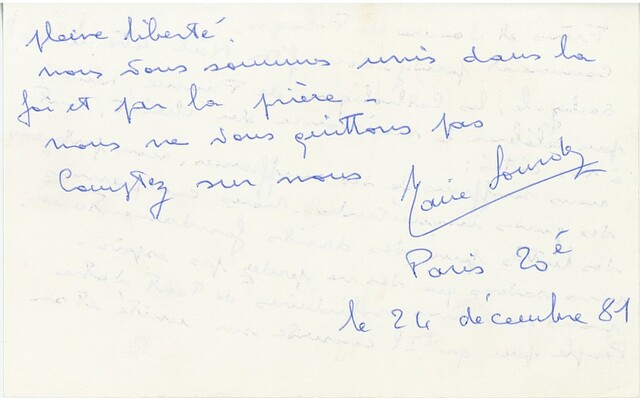 pleine liberté.
nous vous sommes unis dans la
foi et par la prière -
nous ne vous quittons pas
Comptez sur nous
Marie Lourdes
Paris 20è
le 24 décembre 81